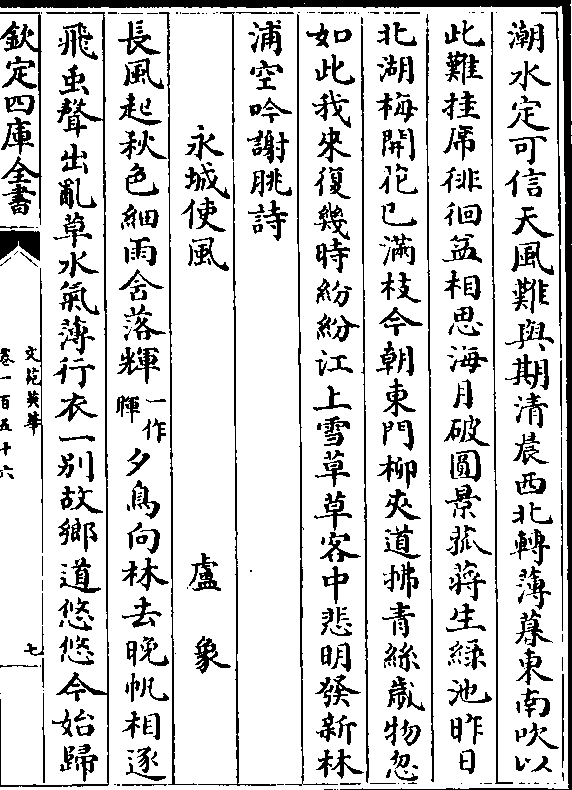 潮水定可信天風難與期清晨西北轉薄暮東南吹以
此難挂席徘徊益相思海月破圓景菰蔣生緑池昨日
北湖梅開花已滿枝今朝東門柳夾道拂青絲歲物忽
如此我來復幾時紛紛江上雪草草客中悲明發新林
浦空吟謝朓詩
永城使風 盧象
長風起秋色細雨含落輝一作暉夕鳥向林去晚帆相逐
飛虫聲出亂草水氣薄行衣一別故鄉道悠悠今始歸
欽定四庫全書
文苑英華
卷一百五十六
七